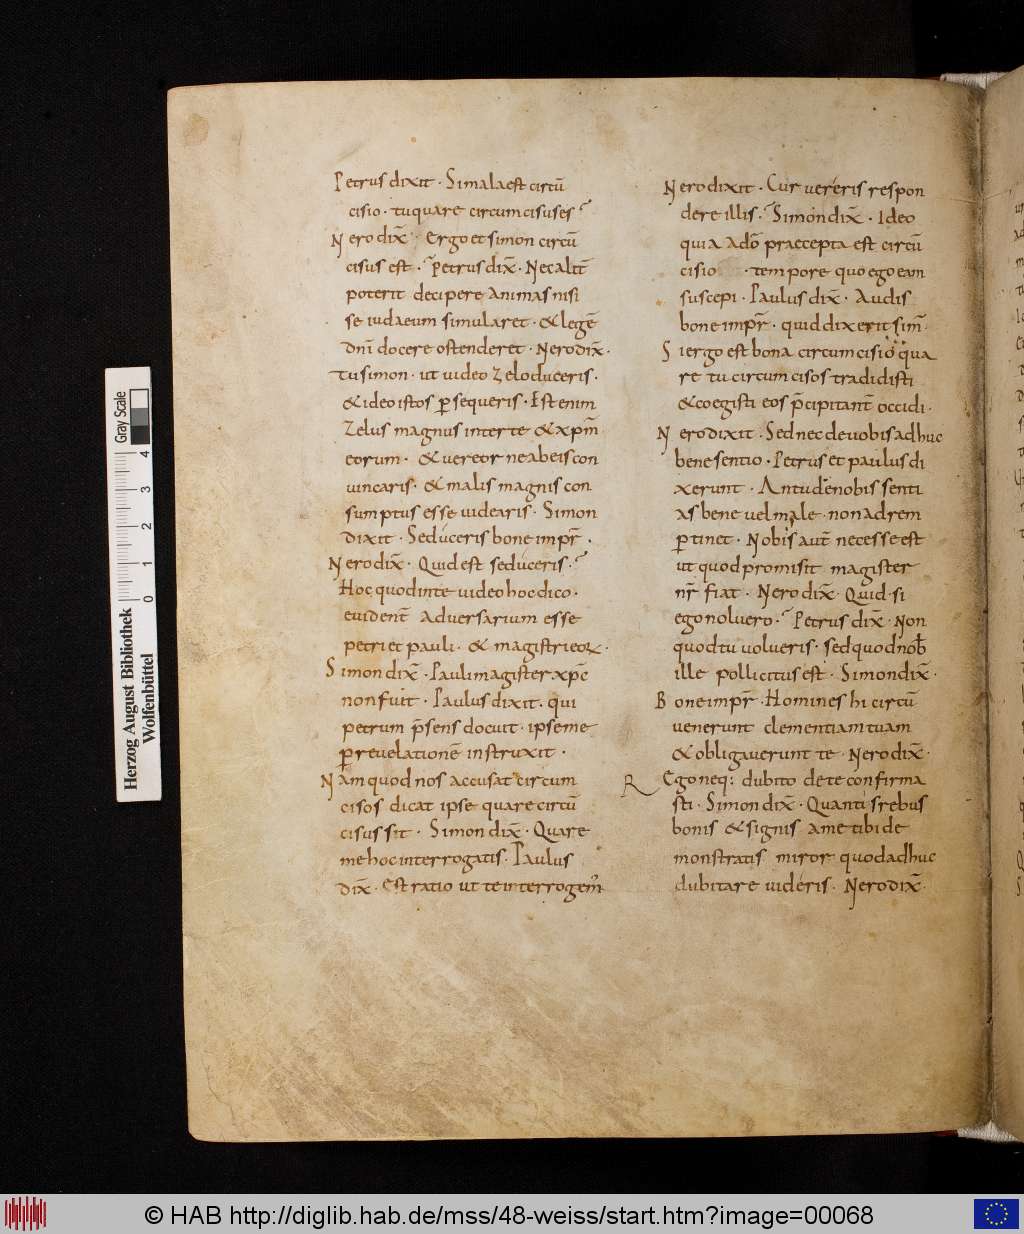 Petrus dixit · Si mala est circū
cisio · tu quare circumcisus es?
Nero dix̄ · Ergo et simon circū
cisus est · ? Petrus dix̄ · Nec alit̄
poterit decipere animas nisi
se iudaeum simularet · & legē
dn̄i docere ostenderet · Nero dix̄ ·
Tu simon · ut video zelo duceris ·
& ideo istos p̱sequeris · Est enim
zelus magnus inter te & xp̄m
eorum · & vereor ne ab eis con
uincaris · & malis magnis con
sumptus esse uidearis · Simon
dixit · Seduceris bone impr̄ ·
Nero dix̄ · Quid est seduceris · ?
Hoc quod in te uideo hoc dico ·
euident̄ adversarium esse
petri et pauli · & magistri eoꝝ ·
Simon dix̄ · Pauli magister xp̄c
non fuit · Paulus dixit · qui
petrum p̄sens docuit · ipse me
p̱ revelationē instruxit ·
Nam quod nos accusat circum
cisos dicat ipse quare circū
cisus sit · Simon dix̄ · Quare
me hoc interrogatis · Paulus
dix̄ · Est ratio ut te interrogem̄
Nero dixit · Cur vereris respon
dere illis · ? Simon dix̄ · Ideo
quia a dō praecepta est circū
cisio · tempore quo ego eam
suscepi · Paulus dix̄ · Audis
bone impr̄ · quid dixerit sim̄ ·
Si ergo est bona circumcisio qua
re tu circumcisos tradidisti
& coegisti eos p̄cipitant̄ occidi ·
Nero dixit · Sed nec de vobis adhuc
bene sentio · Petrus et paulus di
xerunt · An tu de nobis senti
as bene vel male · non ad rem
p̱tinet · Nobis aut̄ necesse est
ut quod promisit magister
nr̄ fiat · Nero dix̄ · Quid · si
ego noluero · ? Petrus dix̄ · Non
quod tu uolueris · sed quod nob̄
ille pollicitus est · Simon dix̄ ·
Bone impr̄ · Homines hi circū
venerunt clementiam tuam
& obligaverunt te · Nero dix̄ ·
R Ego neq: dubito de te confirma
sti · Simon dix̄ · Quantis rebus
bonis & signis a me tibi de
monstratis miror quod adhuc
dubitare videris · Nero dix̄ ·
Gray Scale
0 1 2 3 4
Herzog August Bibliothek
Wolfenbüttel
© HAB http://diglib.hab.de/mss/48-weiss/start.htm?image=00068